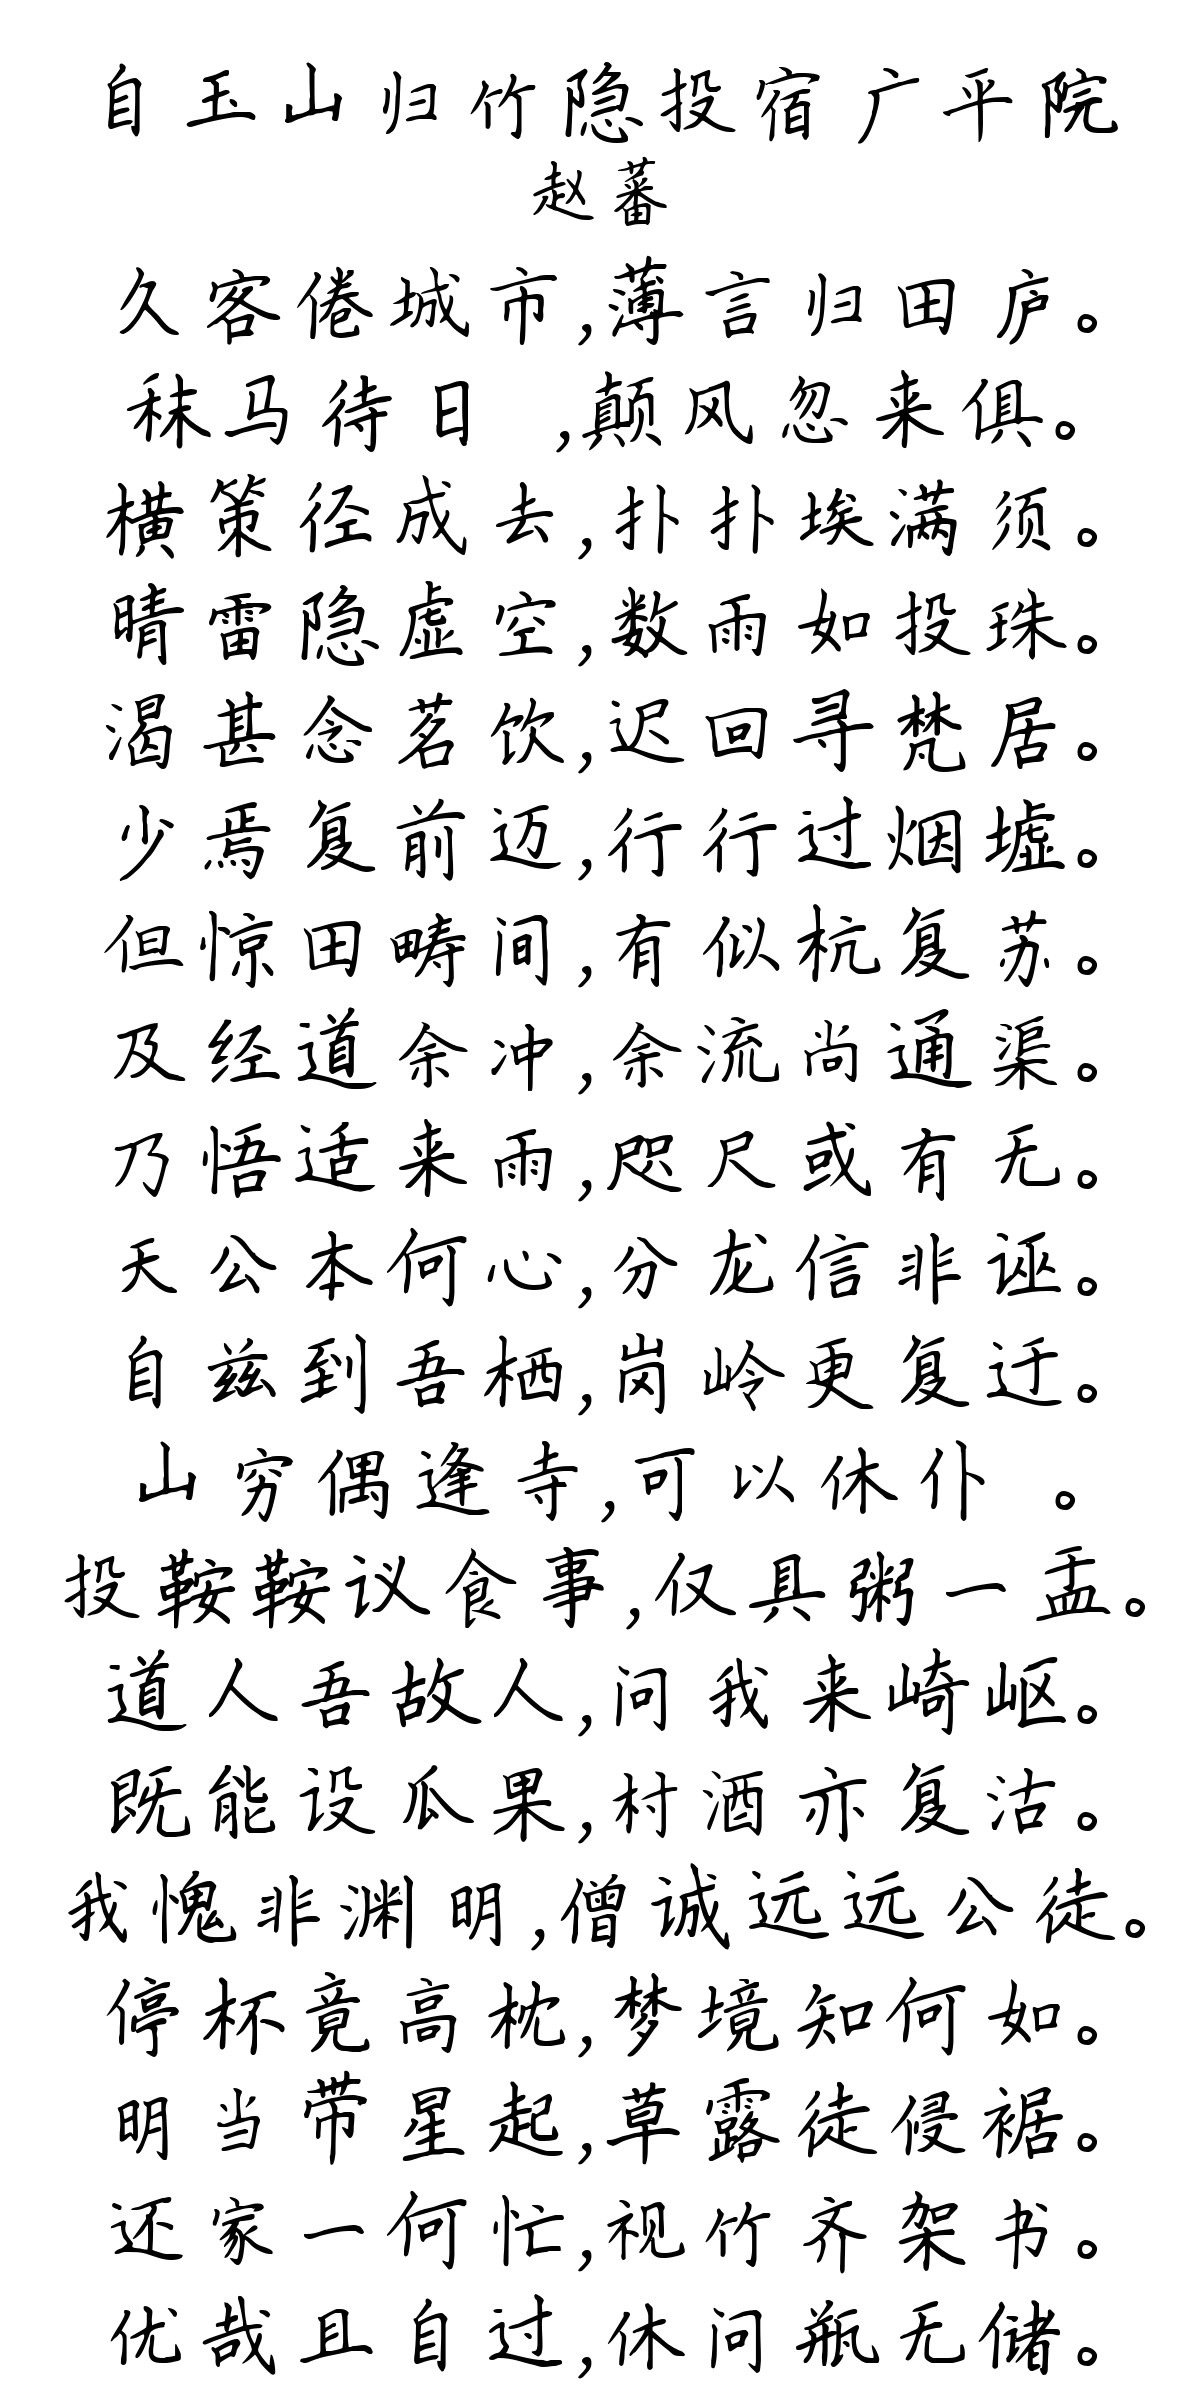 自玉山归竹隐投宿广平院
赵蕃
久客倦城市,薄言归田庐。
秣马待日 ,颠风忽来俱。
横策径成去,扑扑埃满须。
晴雷隐虚空,数雨如投珠。
渴甚念茗饮,迟回寻梵居。
少焉复前迈,行行过烟墟。
但惊田畴间,有似杭复苏。
及经道余冲,余流尚通渠。
乃悟适来雨,咫尺或有无。
天公本何心,分龙信非诬。
自兹到吾栖,岗岭更复迂。
山穷偶逢寺,可以休仆 。
投鞍鞍议食事,仅具粥一盂。
道人吾故人,问我来崎岖。
既能设瓜果,村酒亦复沽。
我愧非渊明,僧诚远远公徒。
停杯竟高枕,梦境知何如。
明当带星起,草露徒侵裾。
还家一何忙,视竹齐架书。
优哉且自过,休问瓶无储。